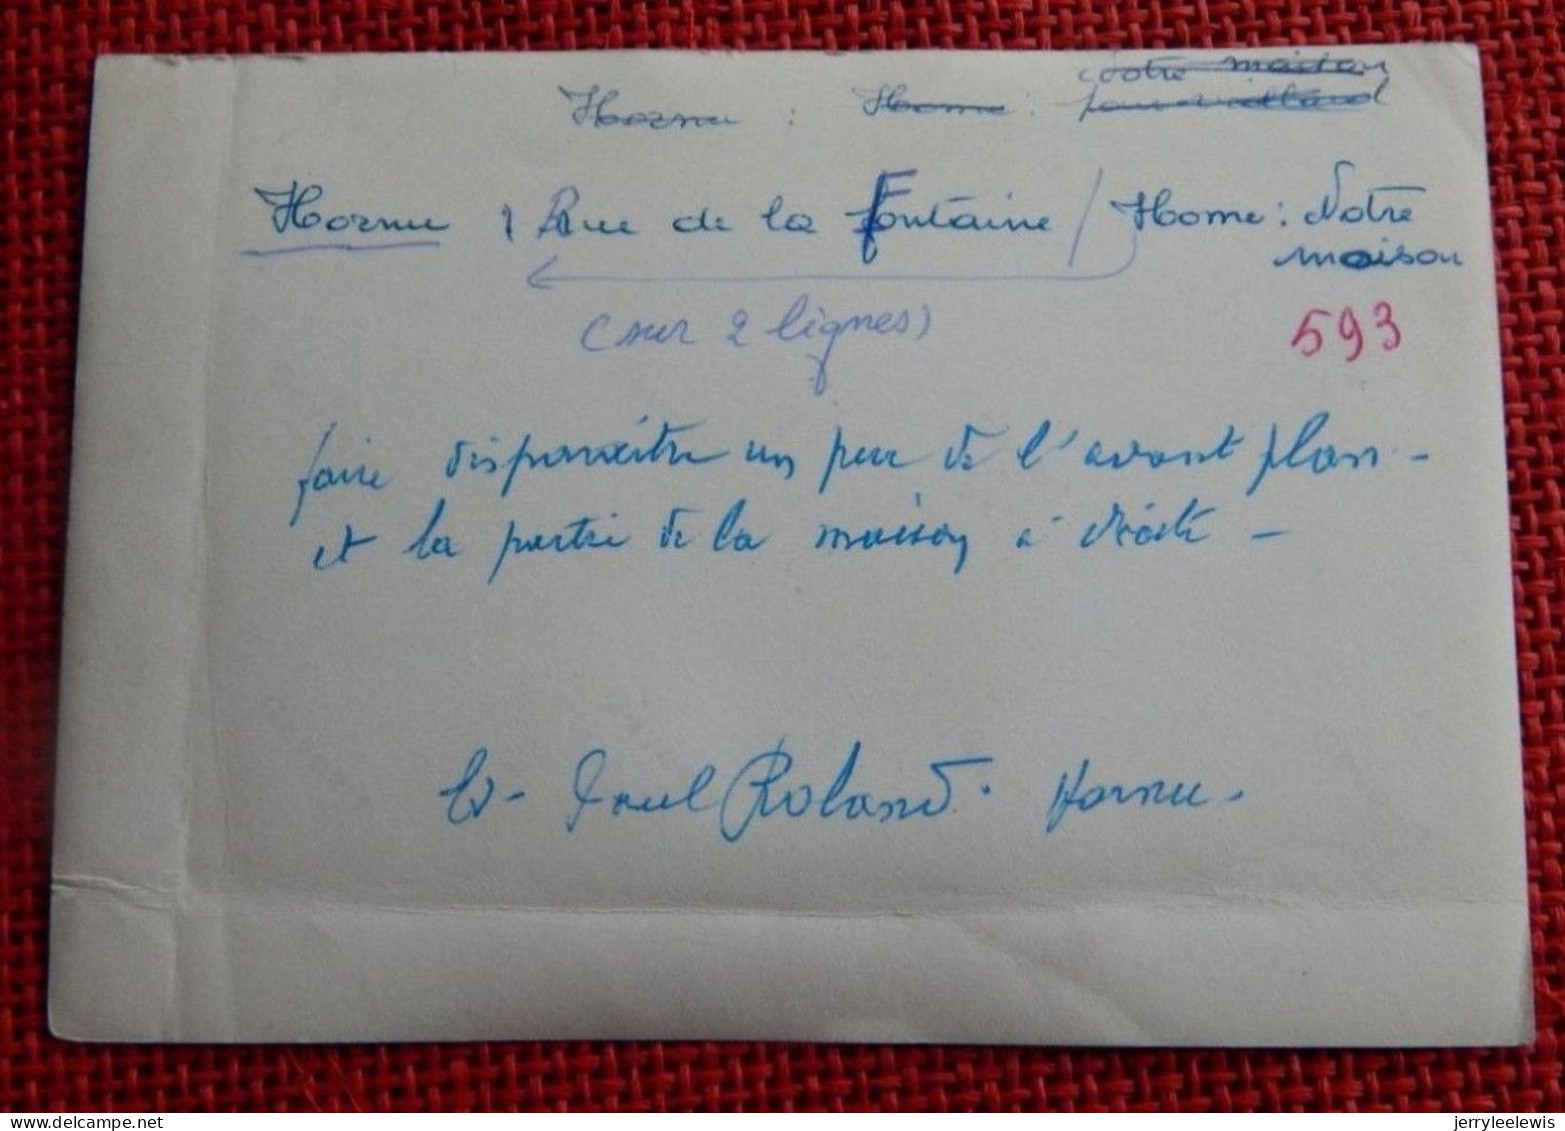 Notre maison
Hornu : Home : pour vieillard
Hornu : Rue de la Fontaine / Home : Notre
maison
(sur 2 lignes)
593
faire disparaître un peu de l'avant plan -
et la partie de la maison à droite -
Ed - Paul Roland. Hornu.
delcampe.net
jerryleelewis